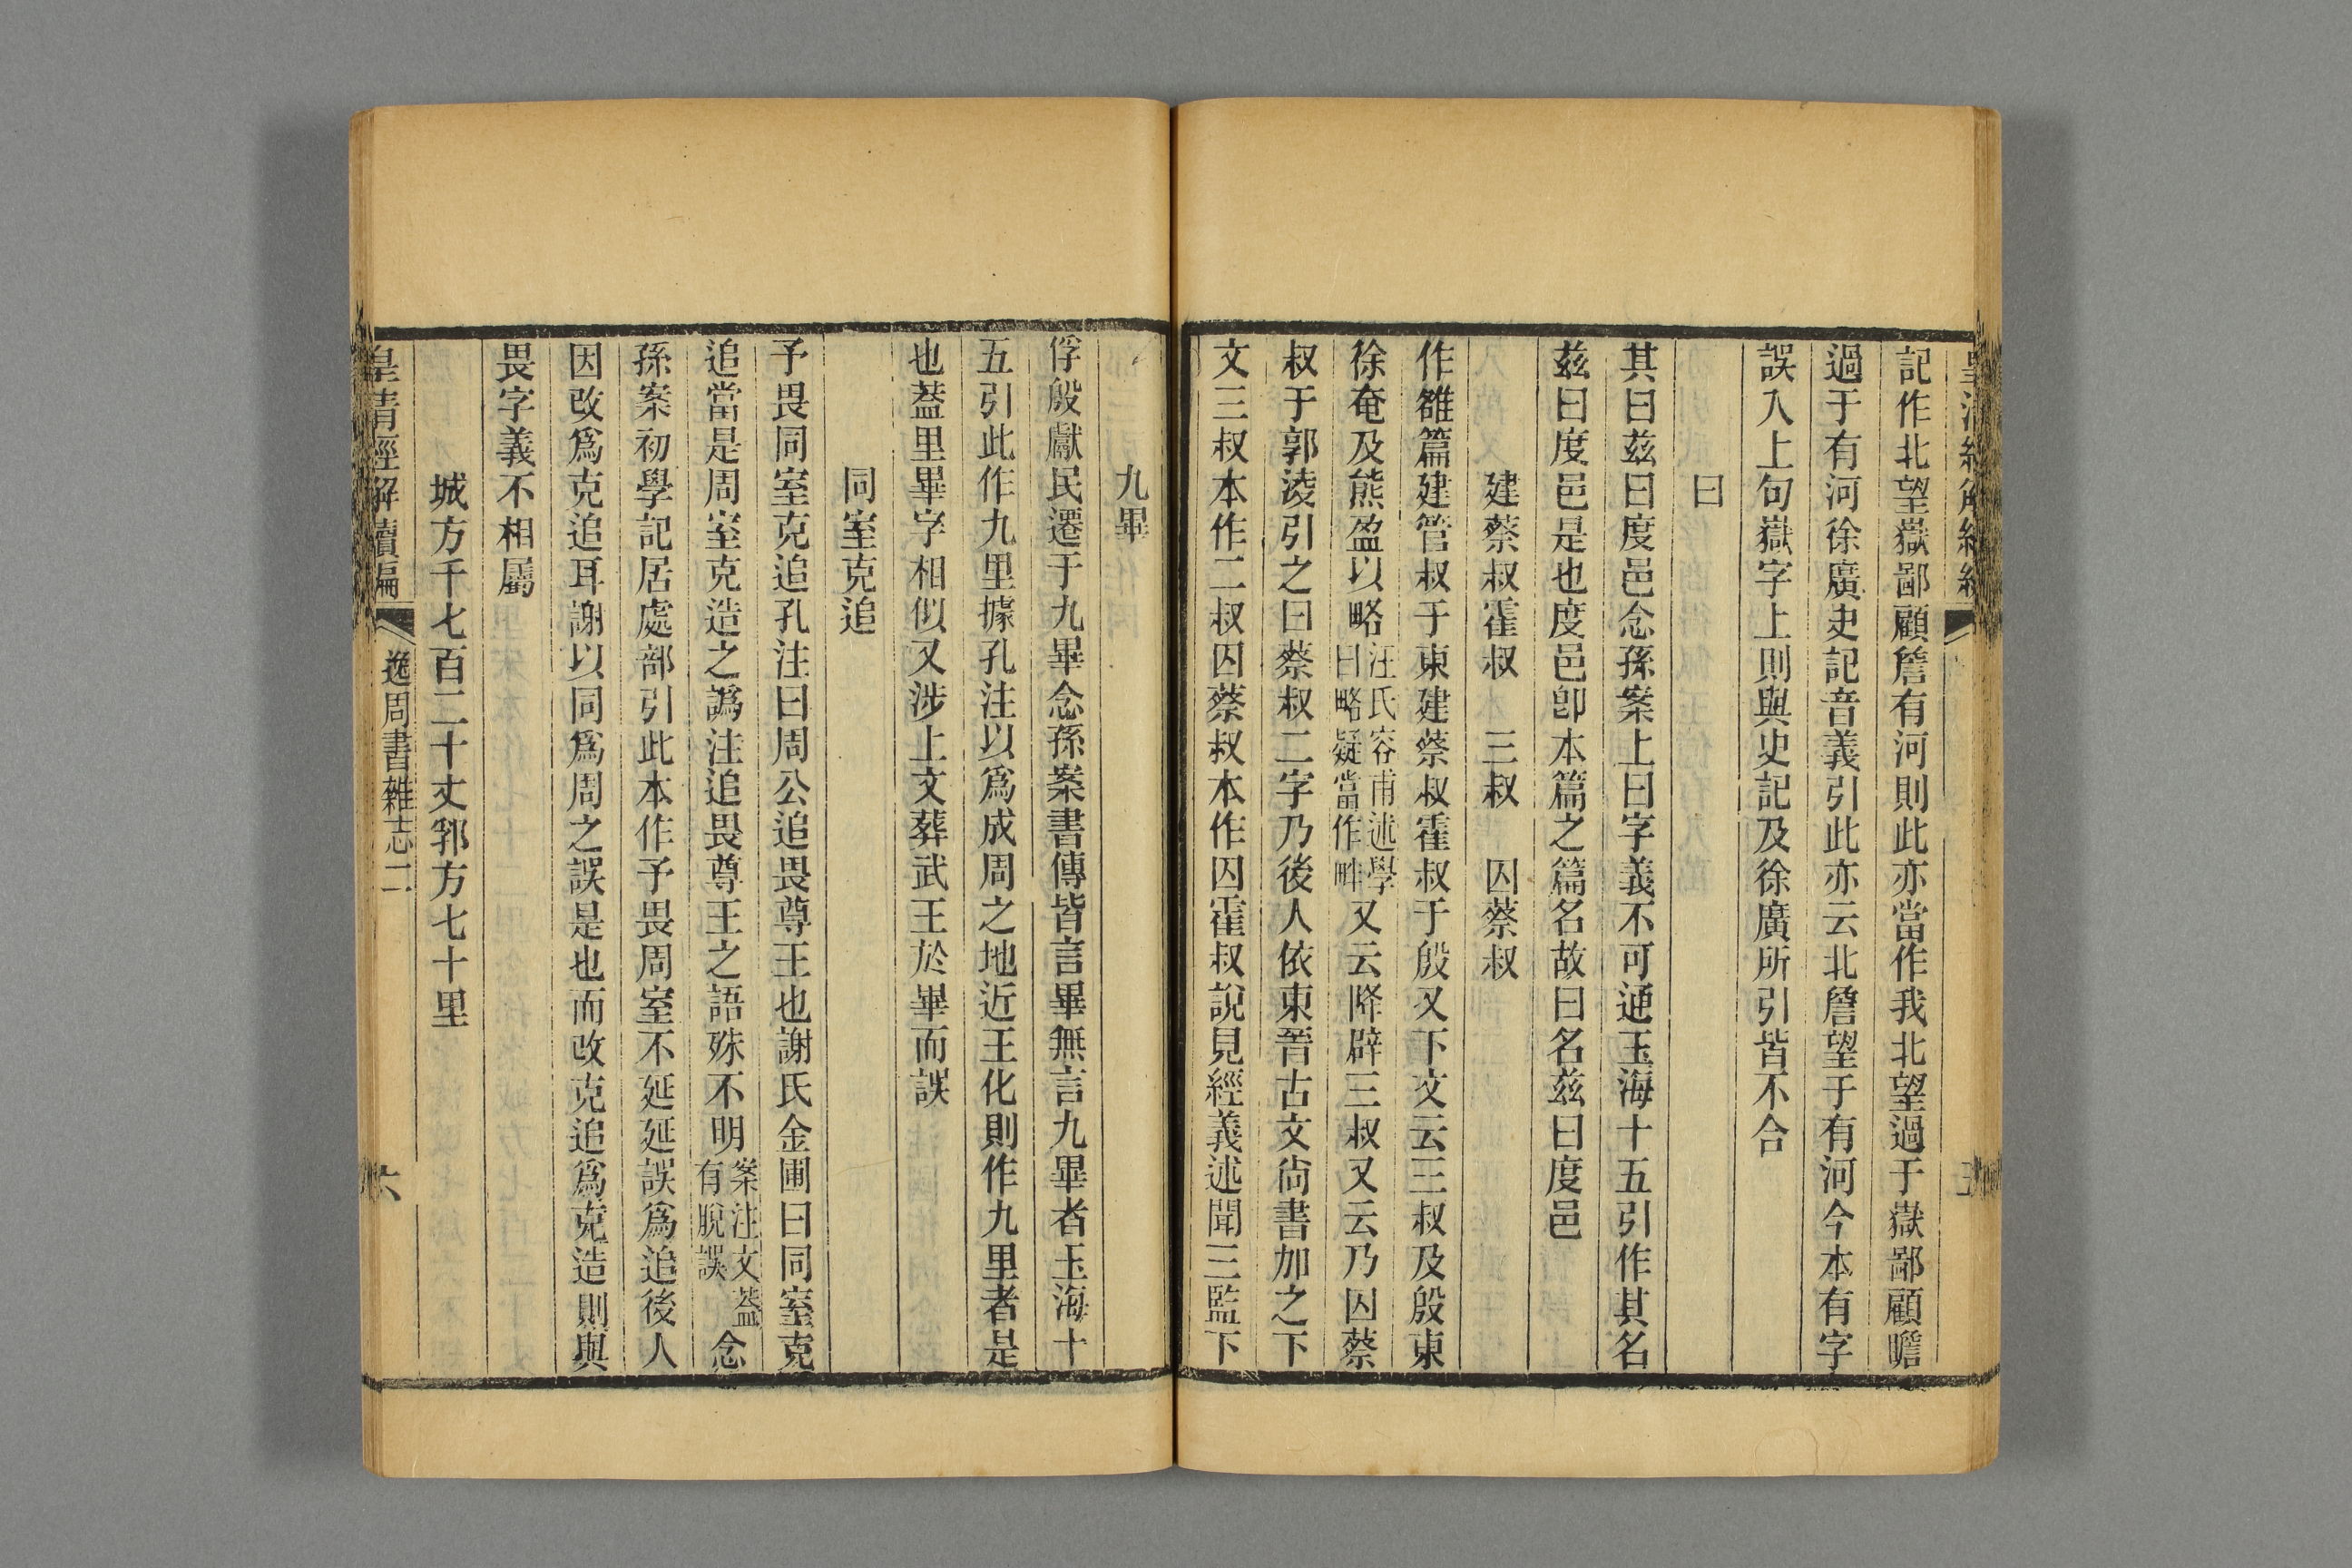 記作北望嶽鄙顧詹有河則此亦當作我北望過于嶽鄙顧瞻
過于有河徐廣史記音義引此亦云北詹望于有河今本有字
誤入上句嶽字上則與史記及徐廣所引皆不合
曰
其曰茲曰度邑念孫案上曰字義不可通玉海十五引作其名
茲曰度邑是也度邑卽本篇之篇名故曰名茲曰度邑
建蔡叔霍叔　三叔　囚蔡叔
作雒篇建管叔于東建蔡叔霍叔于殷又下文云三叔及殷東
徐奄及熊盈以略汪氏容甫述學曰略疑當作畔又云降辟三叔又云乃囚蔡
叔于郭淩引之曰蔡叔二字乃後人依東晉古文尙書加之下
文三叔本作二叔囚蔡叔本作囚霍叔說見經義述聞三監下
九畢
俘殷獻民遷于九畢念孫案書傳皆言畢無言九畢者玉海十
五引此作九里據孔注以爲成周之地近王化則作九里者是
也葢里畢字相似又涉上文葬武王於畢而誤
同室克追
予畏同室克追孔注曰周公追畏尊王也謝氏金圃曰同室克
追當是周室克造之譌注追畏尊王之語殊不明案注文葢有脫誤念
孫案初學記居處部引此本作予畏周室不延延誤爲追後人
因改爲克追耳謝以同爲周之誤是也而改克追爲克造則與
畏字義不相屬
城方千七百二十丈郛方七十里
皇清經解續編　逸周書雜志二　六